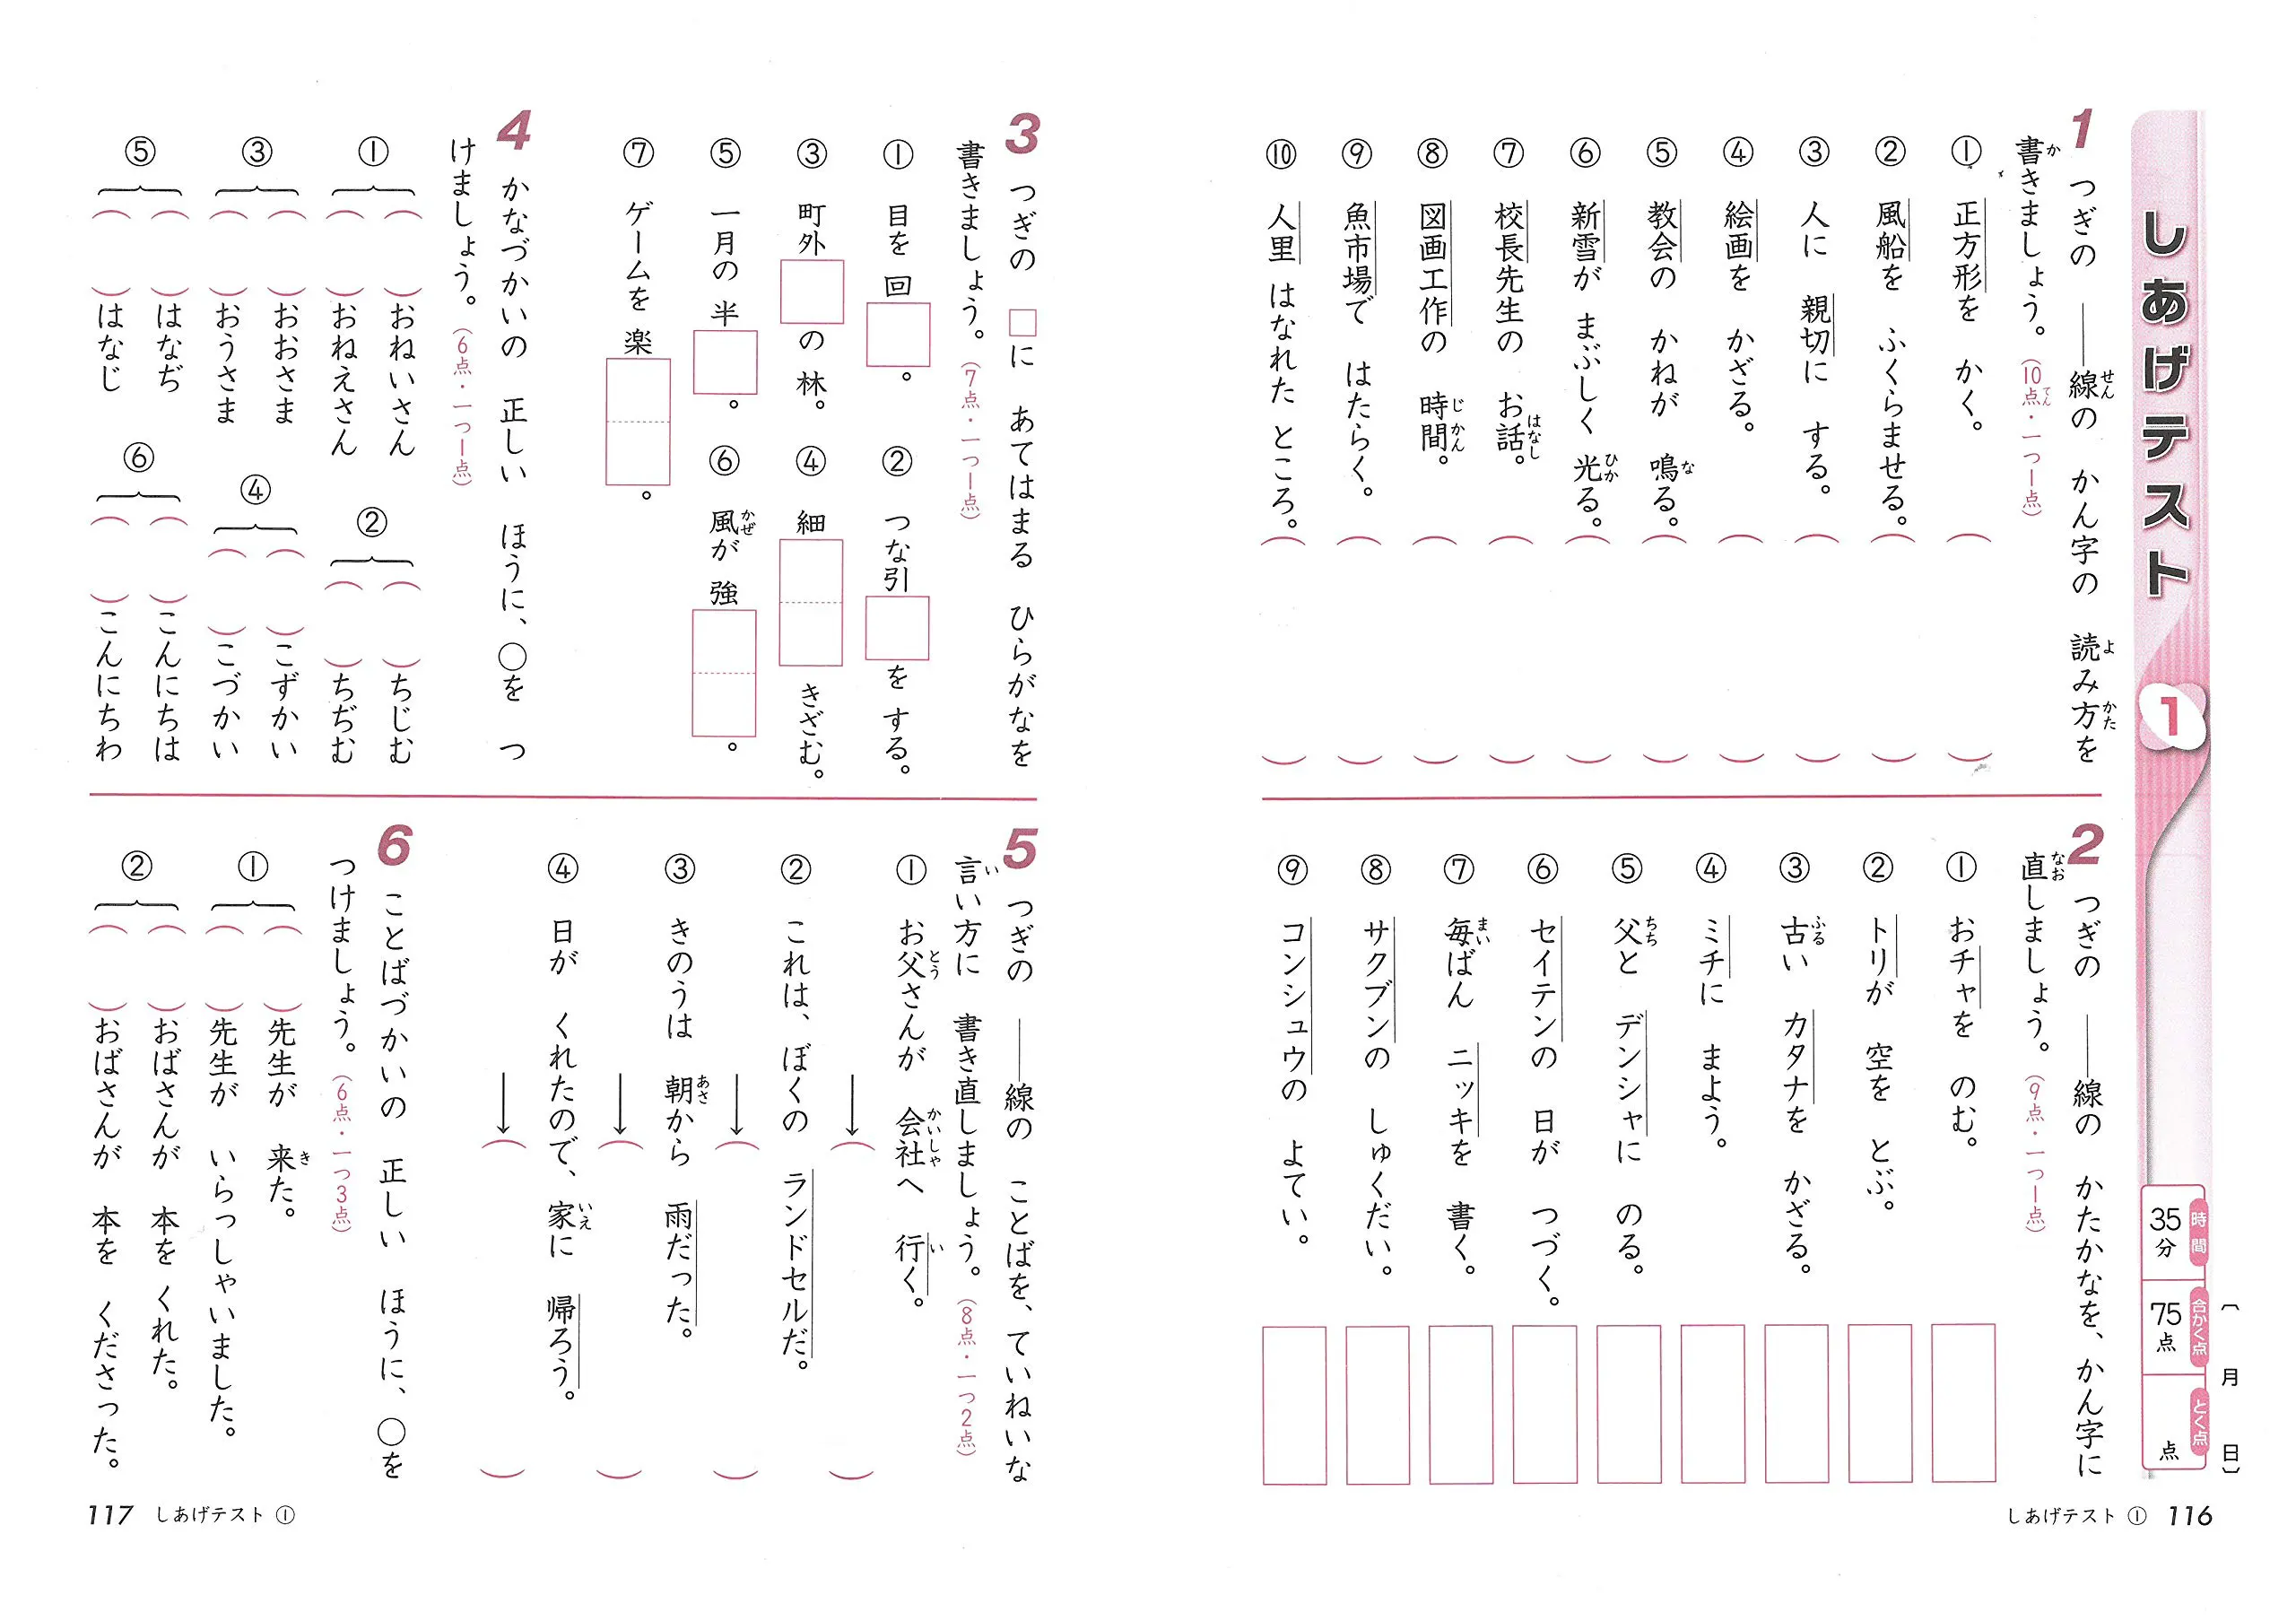 しあげテスト 1
〔 月 日〕
時間 35分
合かく点 75点
とく点 点
1 つぎの ――線の かん字の 読み方を
書きましょう。(10点・一つ1点)
① 正方形を かく。( )
② 風船を ふくらませる。( )
③ 人に 親切に する。( )
④ 絵画を かざる。( )
⑤ 教会の かねが 鳴る。( )
⑥ 新雪が まぶしく 光る。( )
⑦ 校長先生の お話。( )
⑧ 図画工作の 時間。( )
⑨ 魚市場で はたらく。( )
⑩ 人里 はなれた ところ。( )
2 つぎの ――線の かたかなを、かん字に
直しましょう。(9点・一つ1点)
① おチャを のむ。
② トリが 空を とぶ。
③ 古い カタナを かざる。
④ ミチに まよう。
⑤ 父と デンシャに のる。
⑥ セイテンの 日が つづく。
⑦ 毎ばん ニッキを 書く。
⑧ サクブンの しゅくだい。
⑨ コンシュウの よてい。
しあげテスト ① 116
3 つぎの □に あてはまる ひらがなを
書きましょう。(7点・一つ1点)
① 目を 回□。
② つな引□を する。
③ 町外□の 林。
④ 細□□きざむ。
⑤ 一月の 半□。
⑥ 風が 強□□。
⑦ ゲームを 楽□□。
4 かなづかいの 正しい ほうに、○を つ
けましょう。(6点・一つ1点)
① ( )おねいさん
( )おねえさん
② ( )ちじむ
( )ちぢむ
③ ( )おおさま
( )おうさま
④ ( )こずかい
( )こづかい
⑤ ( )はなぢ
( )はなじ
⑥ ( )こんにちは
( )こんにちわ
5 つぎの ――線の ことばを、ていねいな
言い方に 書き直しましょう。(8点・一つ2点)
① お父さんが 会社へ 行く。
→( )
② これは、ぼくの ランドセルだ。
→( )
③ きのうは 朝から 雨だった。
→( )
④ 日が くれたので、家に 帰ろう。
→( )
6 ことばづかいの 正しい ほうに、○を
つけましょう。(6点・一つ3点)
① ( )先生が 来た。
( )先生が いらっしゃいました。
② ( )おばさんが 本を くれた。
( )おばさんが 本を くださった。
117 しあげテスト ①